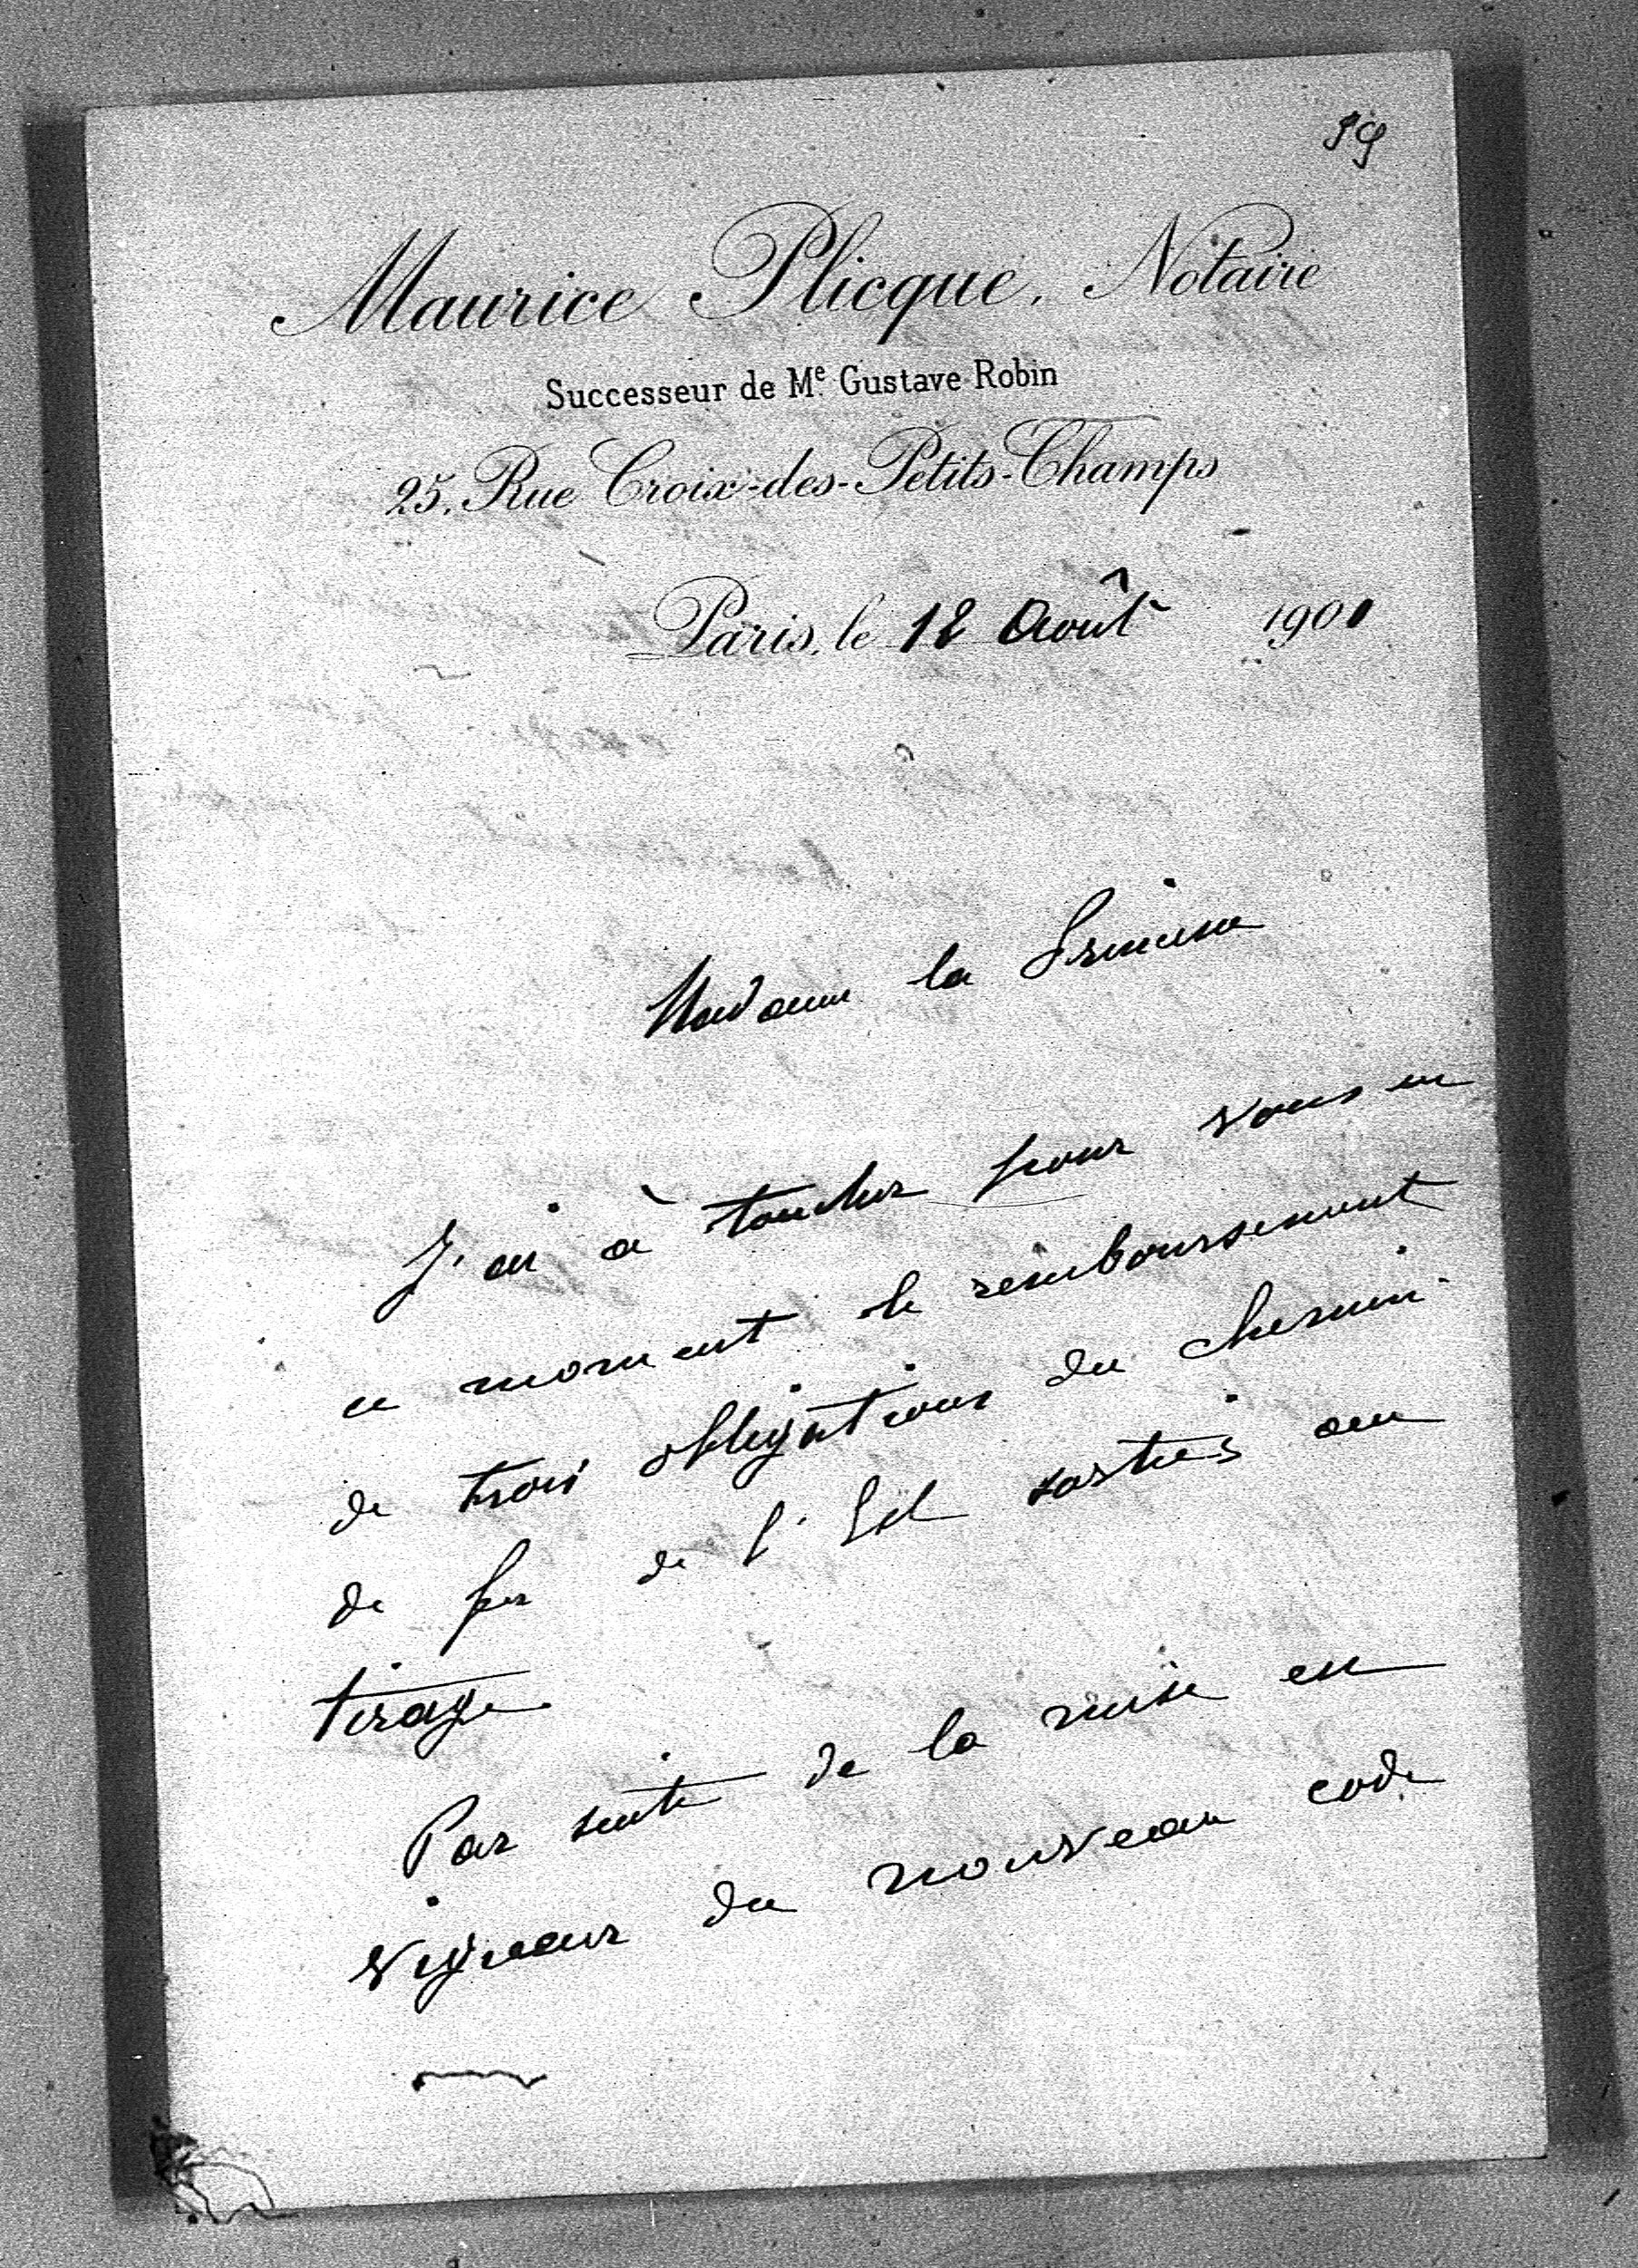 59
Maurice Plicque, Notaire
Successeur de Me Gustave Robin
25, Rue Croix-des-Petits-Champs
Paris, le 12 Août 1901
Madame la Princesse
J'ai à toucher pour vous en
ce moment le remboursement
de trois obligations du chemin
de fer de l'Est sorties au
tirage.
Par suite de la mise en
vigueur du nouveau code